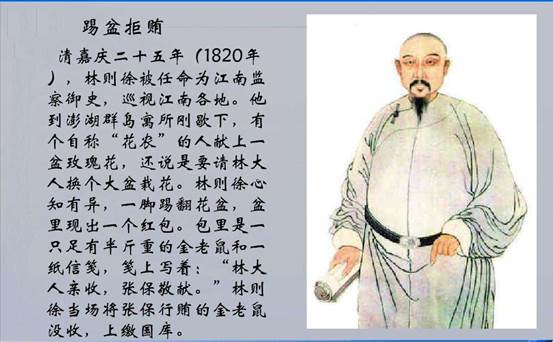 踢盆拒贿
清嘉庆二十五年（1820年
），林则徐被任命为江南监
察御史，巡视江南各地。他
到澎湖群岛寓所刚歇下，有
个自称“花农”的人献上一
盆玫瑰花，还说是要请林大
人换个大盆栽花。林则徐心
知有异，一脚踢翻花盆，盆
里现出一个红包。包里是一
只足有半斤重的金老鼠和一
纸信笺，笺上写着：“林大
人亲收，张保敬献。”林则
徐当场将张保行贿的金老鼠
没收，上缴国库。